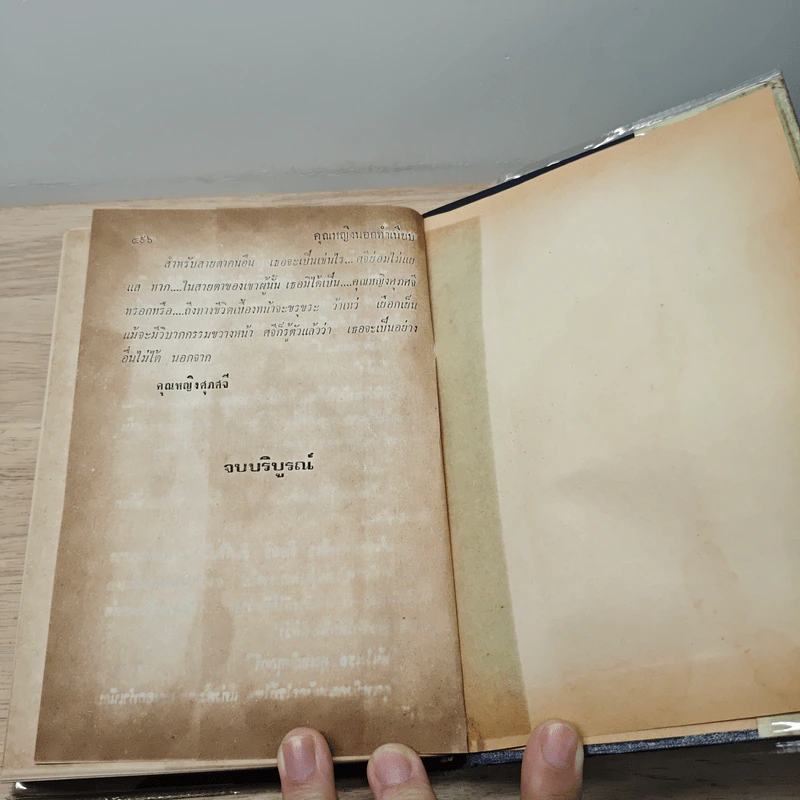 ๔๙๖ คุณหญิงนอกทำเนียบ
สำหรับสายตาคนอื่น เธอจะเป็นเช่นไร... ศจีย่อมไม่แย
แส หาก....ในสายตาของเขาผู้นั้น เธอมิได้เป็น....คุณหญิงศุภศจี
หรอกหรือ....ถึงทางชีวิตเบื้องหน้าจะขรุขระ ว้าเหว่ เยือกเย็น
แม้จะมีวิบากกรรมขวางหน้า ศจีก็รู้ตัวแล้วว่า เธอจะเป็นอย่าง
อื่นไม่ได้ นอกจาก
คุณหญิงศุภศจี
จบบริบูรณ์